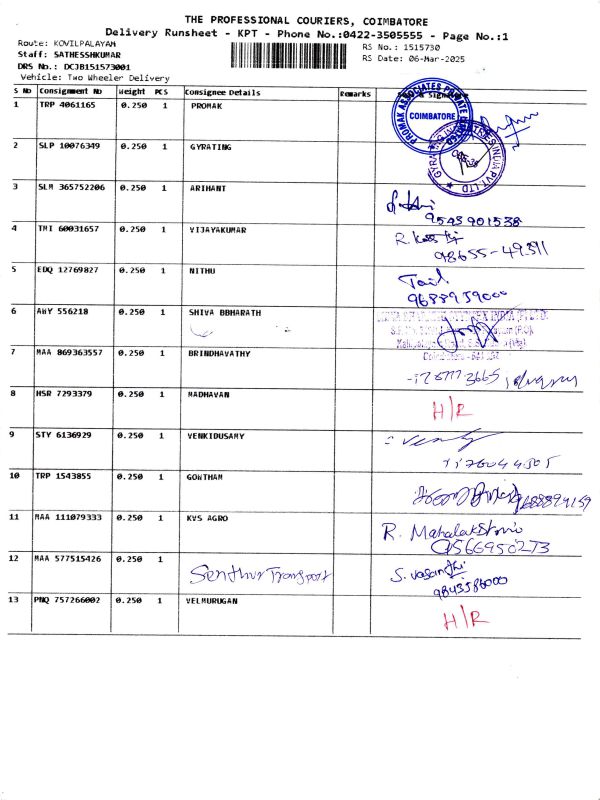 THE PROFESSIONAL COURIERS, COIMBATORE
Delivery Runsheet - KPT - Phone No.:0422-3505555 - Page No.:1
Route: KOVILPALAYAM
RS No.: 1515730
Staff: SATHESSHKUMAR
RS Date: 06-Mar-2025
DRS No.: DCJB151573001
Vehicle: Two Wheeler Delivery
S No Consignment No Weight PCS Consignee Details Remarks & Sign
1 TRP 4061165 0.250 1 PROMAK
PROMAK ASSOCIATES PRIVATE
COIMBATORE
2 SLP 10076349 0.250 1 GYRATING
GYRATING INDUSTRIES INDIA PVT LTD
3 SLM 365752206 0.250 1 ARIHANT
9543901538
4 TMI 60031657 0.250 1 VIJAYAKUMAR
98655-49311
5 EDQ 12769827 0.250 1 NITHU
9688959000
6 ABY 556218 0.250 1 SHIVA BBHARATH
Coimbatore - 641
7 MAA 869363557 0.250 1 BRINDHAVATHY
8 HSR 7293379 0.250 1 MADHAVAN
H/R
9 STY 6136929 0.250 1 VENKIDUSAMY
10 TRP 1543855 0.250 1 GONTHAM
11 MAA 111079333 0.250 1 KVS AGRO
R.
9566950273
12 MAA 577515426 0.250 1 Senthur Transport
S. Vasanthi
13 PNQ 757266002 0.250 1 VELMURUGAN
H/R